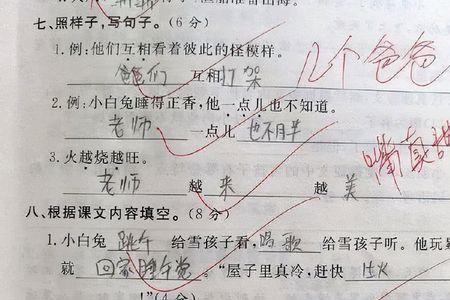 七、照样子,写句子。(6分)
1.例:他们互相看着彼此的怪模样。
爸爸们 互相打架 几个爸爸
2.例:小白兔睡得正香,他一点儿也不知道。
老师 一点儿 也不胖 嘴真甜
3.火越烧越旺。
老师 越 来 越 美
八、根据课文内容填空。(8分)
1.小白兔 跳午 给雪孩子看,唱歌 给雪孩子听。他玩累
就 回家睡午觉。“屋子里真冷,赶快
!”(4分)